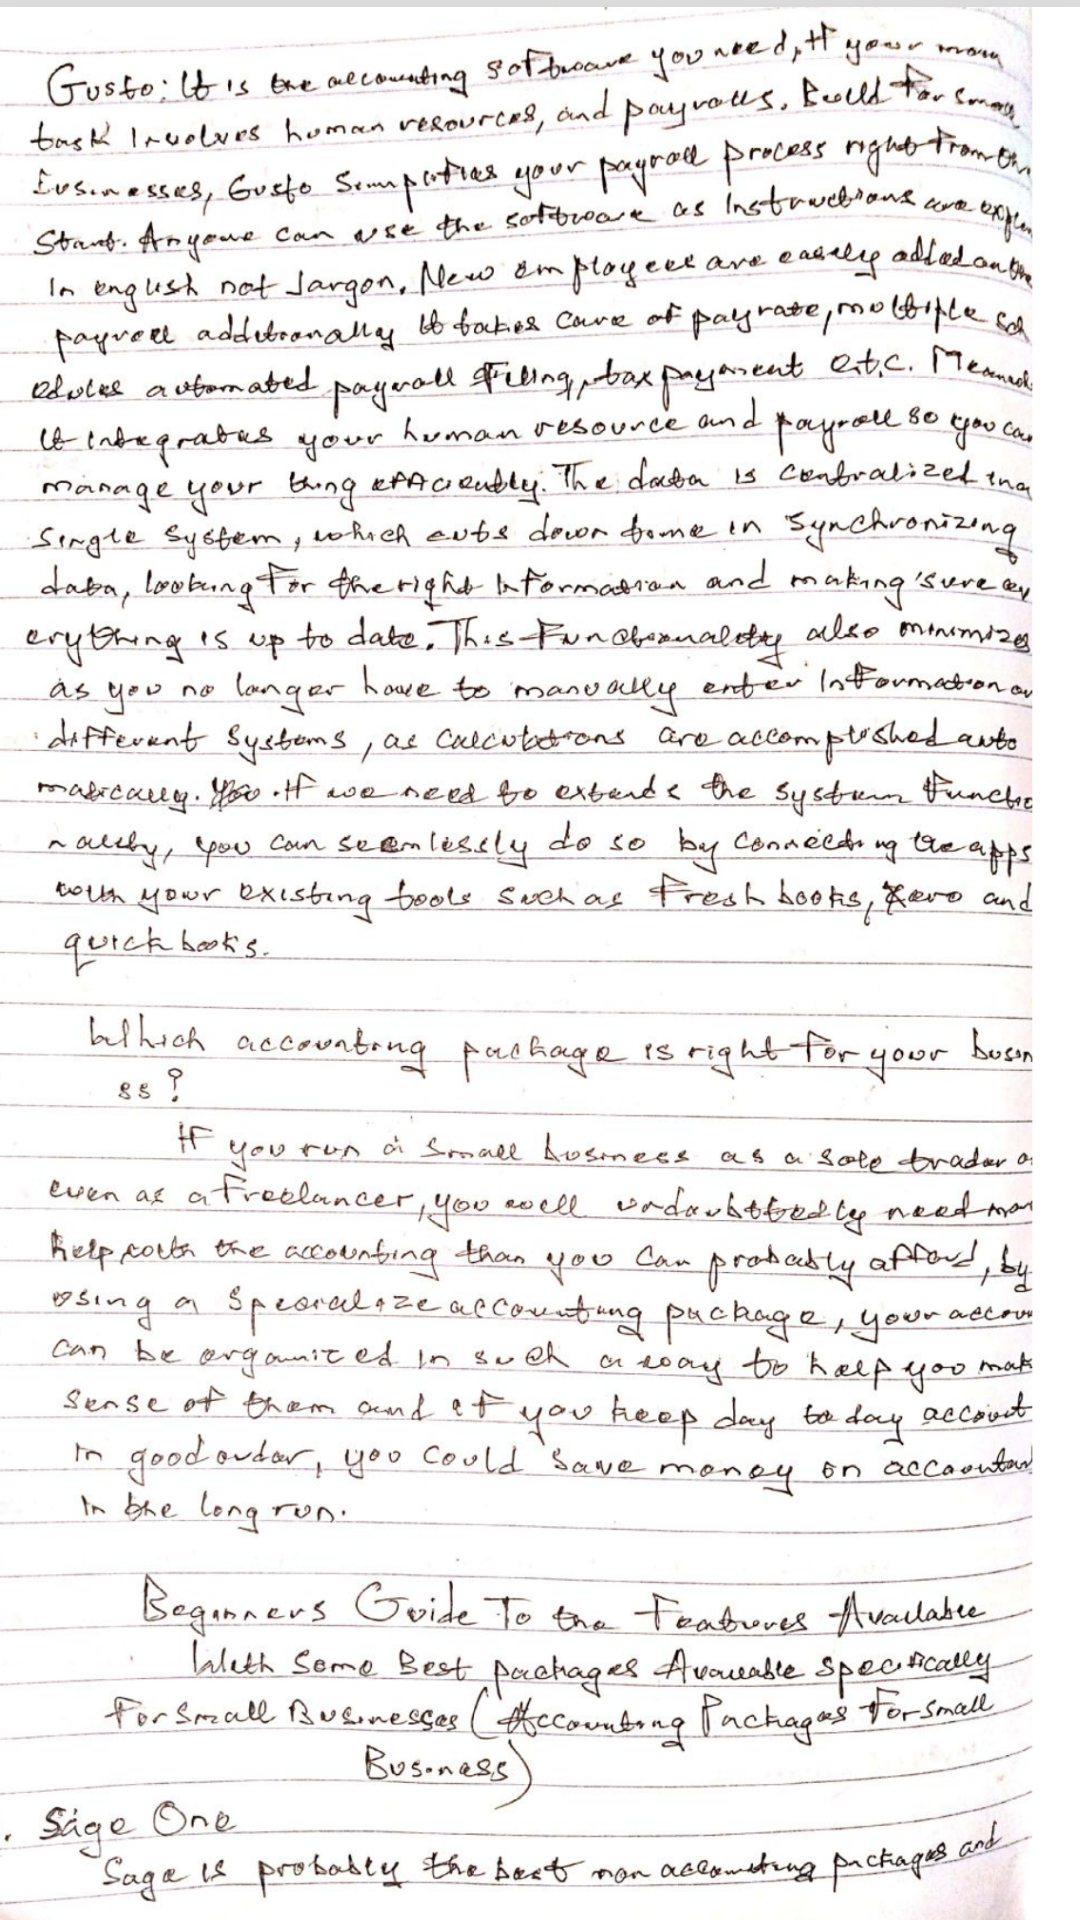 Gusto: It is the accounting software you need, If your main
task Involves human resources, and payrolls. Build For small
businesses, Gusto Simplifies your payroll process right From the
Start. Anyone can use the software as Instructions are explain
In english not Jargon. New employees are easily added on the
payroll additionally It takes care of payrate, moltiple sch
edules automated payroll Filling, tax payment e.t.c. Meanwhile
It integrates your human resource and payroll so you can
manage your thing efficiently. The data is centralized in a
single system, which cuts down time in synchronizing
data, looking For the right Information and making sure ev
erything is up to date. This Functionality also minimizes
as you no longer have to manually enter Information on
different systems, as calculations are accomplished auto
matically. If we need to extends the system functio
nality, you can seemlessly do so by connecting the apps
with your existing tools such as Fresh books, Xero and
quick books.
Which accounting package is right For your busin
ss?
If you run a small business as a sole trader or
even as a Freelancer, you will undoubttedly need more
help with the accounting than you can probably afford, by
using a specialize accounting package, your accou
can be organized in such a way to help you make
sense of them and if you keep day to day account
in good order, you could save money on accountan
In the long run.
Beginners Guide To the Features Available
With Some Best packages Available specifically
For Small Businesses (Accounting Packages For small
Business)
. Sage One
Sage is probably the best non accounting packages and